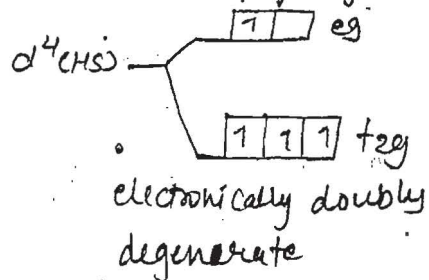 1 eg
d⁴(HS)
1 1 1 t2g
electronically doubly
degenerate